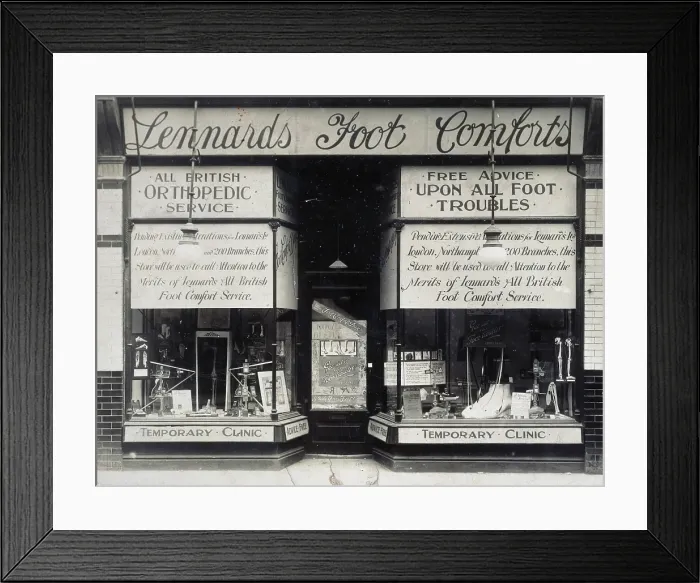 Lennards Foot Comforts
· ALL BRITISH ·
ORTHOPEDIC
· SERVICE ·
· FREE ADVICE ·
UPON ALL FOOT
· TROUBLES ·
Pending Extensive Alterations for Lennards
London, and 200 Branches, this
Store will be used to call Attention to the
Merits of Lennards All British
Foot Comfort Service.
Pending Extensive Alterations for Lennards
London, Northampton 200 Branches, this
Store will be used to call Attention to the
Merits of Lennards All British
Foot Comfort Service.
TEMPORARY · CLINIC
ADVICE FREE
ADVICE FREE
TEMPORARY · CLINIC